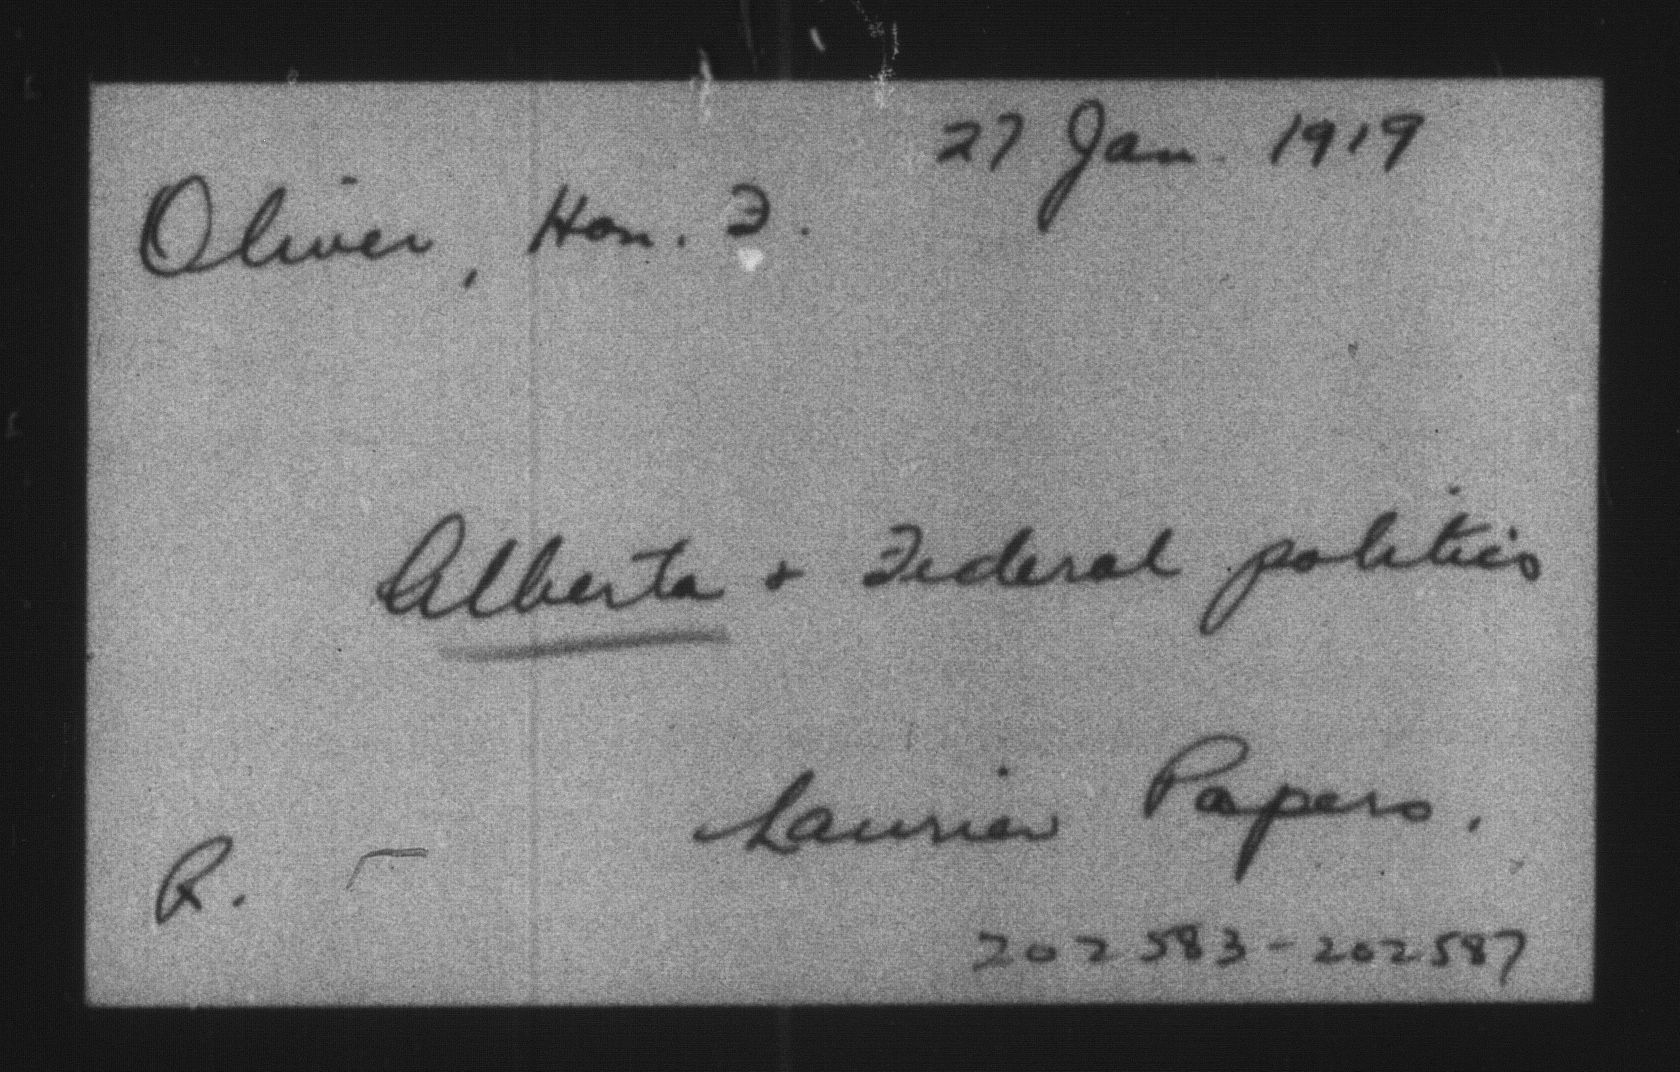 27 Jan. 1919
Oliver, Hon. F.
Alberta & Federal politics
Laurier Papers.
R.
202583-202587